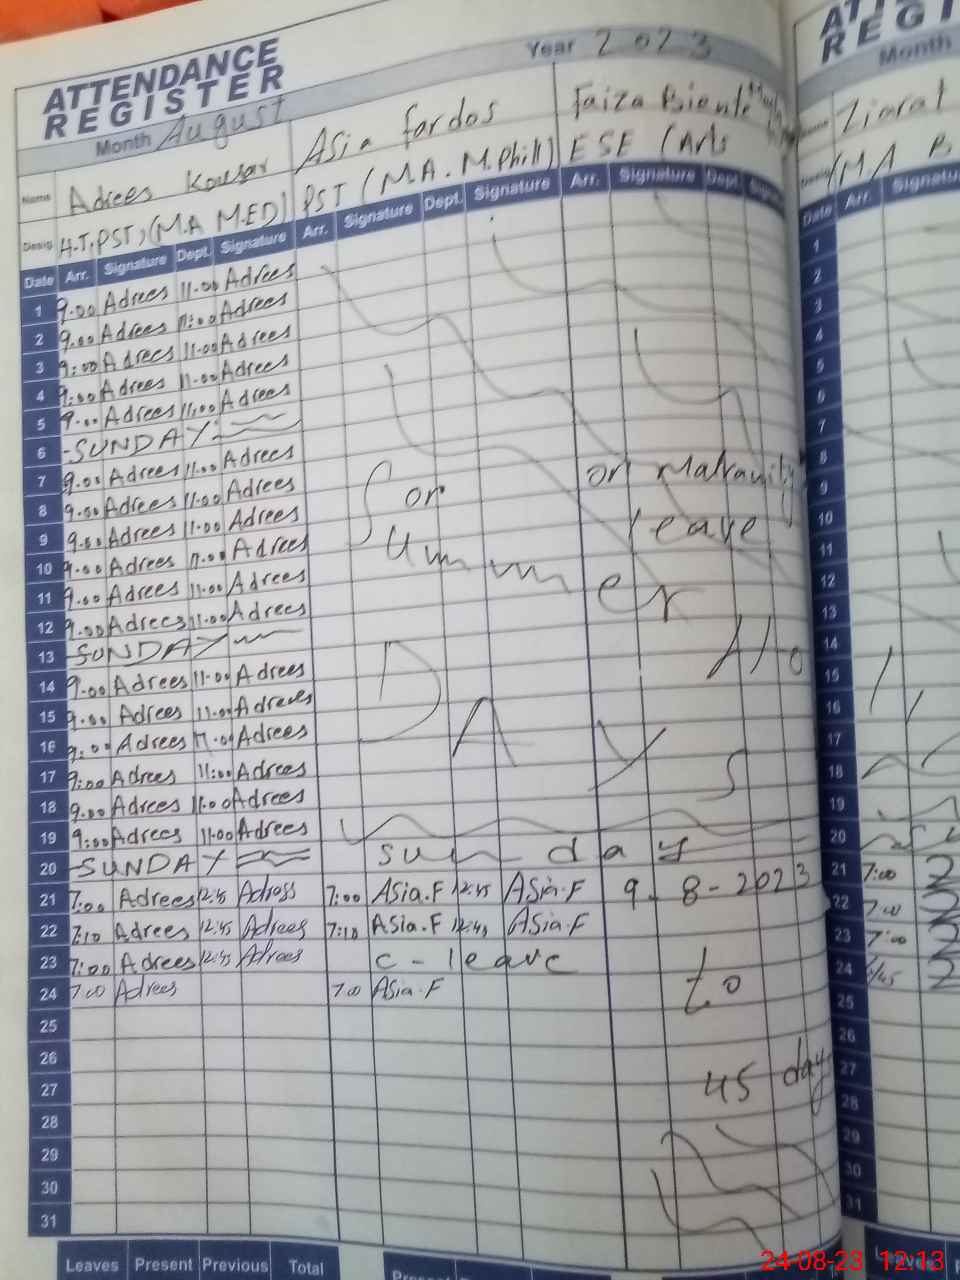 ATTENDANCE REGISTER
Year 2023
Month August
Name Adrees Kousar Asia fardos Faiza
Desig H.T, PST, (M.A M.ED) PST (M.A. M.Phill) ESE (Arts
Date Arr. Signature Dept. Signature Arr. Signature Dept. Signature Arr. Signature Dept. Signature
1 9.00 Adrees 11.00 Adrees
2 9.00 Adrees 11:00 Adrees
3 9:00 Adrees 11.00 Adrees
4 9:00 Adrees 11.00 Adrees
5 9.00 Adrees 11.00 Adrees
6 -SUNDAY-
7 9.00 Adrees 11.00 Adrees
8 9.00 Adrees 11.00 Adrees on
9 9.00 Adrees 11.00 Adrees leave
10 9.00 Adrees 11.00 Adrees ummer
11 9.00 Adrees 11.00 Adrees
12 9.00 Adrees 11.00 Adrees
13 -SUNDAY
14 9.00 Adrees 11.00 Adrees
15 9.00 Adrees 11.00 Adrees
16 9:00 Adrees 11.00 Adrees DAYS
17 9:00 Adrees 11:00 Adrees
18 9.00 Adrees 11.00 Adrees
19 9:00 Adrees 11.00 Adrees
20 -SUNDAY sunday
21 7:00 Adrees 12:45 Adrees 7:00 Asia.F 12:45 Asia.F 9-8-2023
22 7:10 Adrees 12:45 Adrees 7:10 Asia.F 12:45 Asia.F
23 7:00 Adrees 12:45 Adrees c-leave
24 7:00 Adrees 7:00 Asia.F to
25
26
27 45 days
28
29
30
31
Leaves Present Previous Total
Present
ATTE
REGI
Month
Name Ziarat
Desig (M A
Date Arr. Signature
1
2
3
4
5
6
7
8
9
10
11
12
13
14
15
16
17
18
19
20
21 7:00
22 7:00
23 7:00
24
25
26
27
28
29
30
31
Leaves
24-08-23 12:13